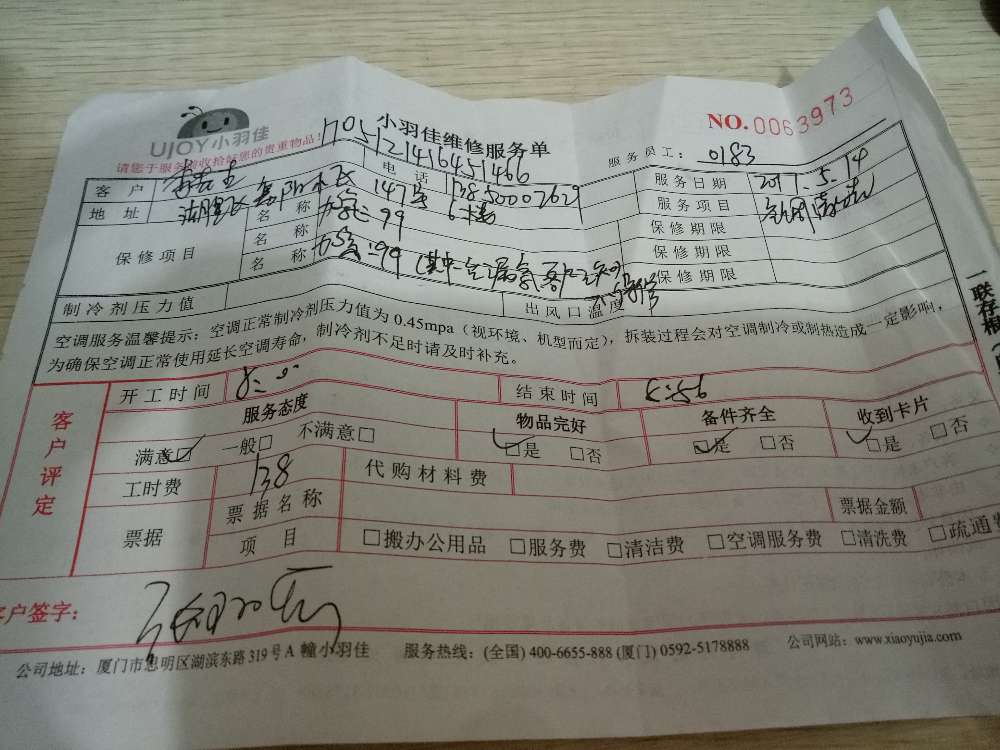 UJOY小羽佳
小羽佳维修服务单
NO.0063973
请您于服务前收拾好您的贵重物品!
1705121416451466
服务员工: 0183
客户 电话 13850007629 服务日期 2017.5.14
地址 湖里区 小区 147号 6楼 服务项目 空调
保修项目 名称 99 保修期限
名称 保修期限
名称 99 (其中一台漏氟 保修期限
制冷剂压力值 出风口温度
空调服务温馨提示: 空调正常制冷剂压力值为 0.45mpa (视环境、机型而定), 拆装过程会对空调制冷或制热造成一定影响,
为确保空调正常使用延长空调寿命, 制冷剂不足时请及时补充。
一联存根
客户评定
开工时间 结束时间
服务态度 物品完好 备件齐全 收到卡片
满意☑ 一般□ 不满意□ ☑是 □否 ☑是 □否 ☑是 □否
工时费 138 代购材料费
票据 票据名称 票据金额
项目 □搬办公用品 □服务费 □清洁费 □空调服务费 □清洗费 □疏通
客户签字:
公司地址: 厦门市思明区湖滨东路319号A幢小羽佳 服务热线: (全国) 400-6655-888 (厦门) 0592-5178888 公司网站: www.xiaoyujia.com